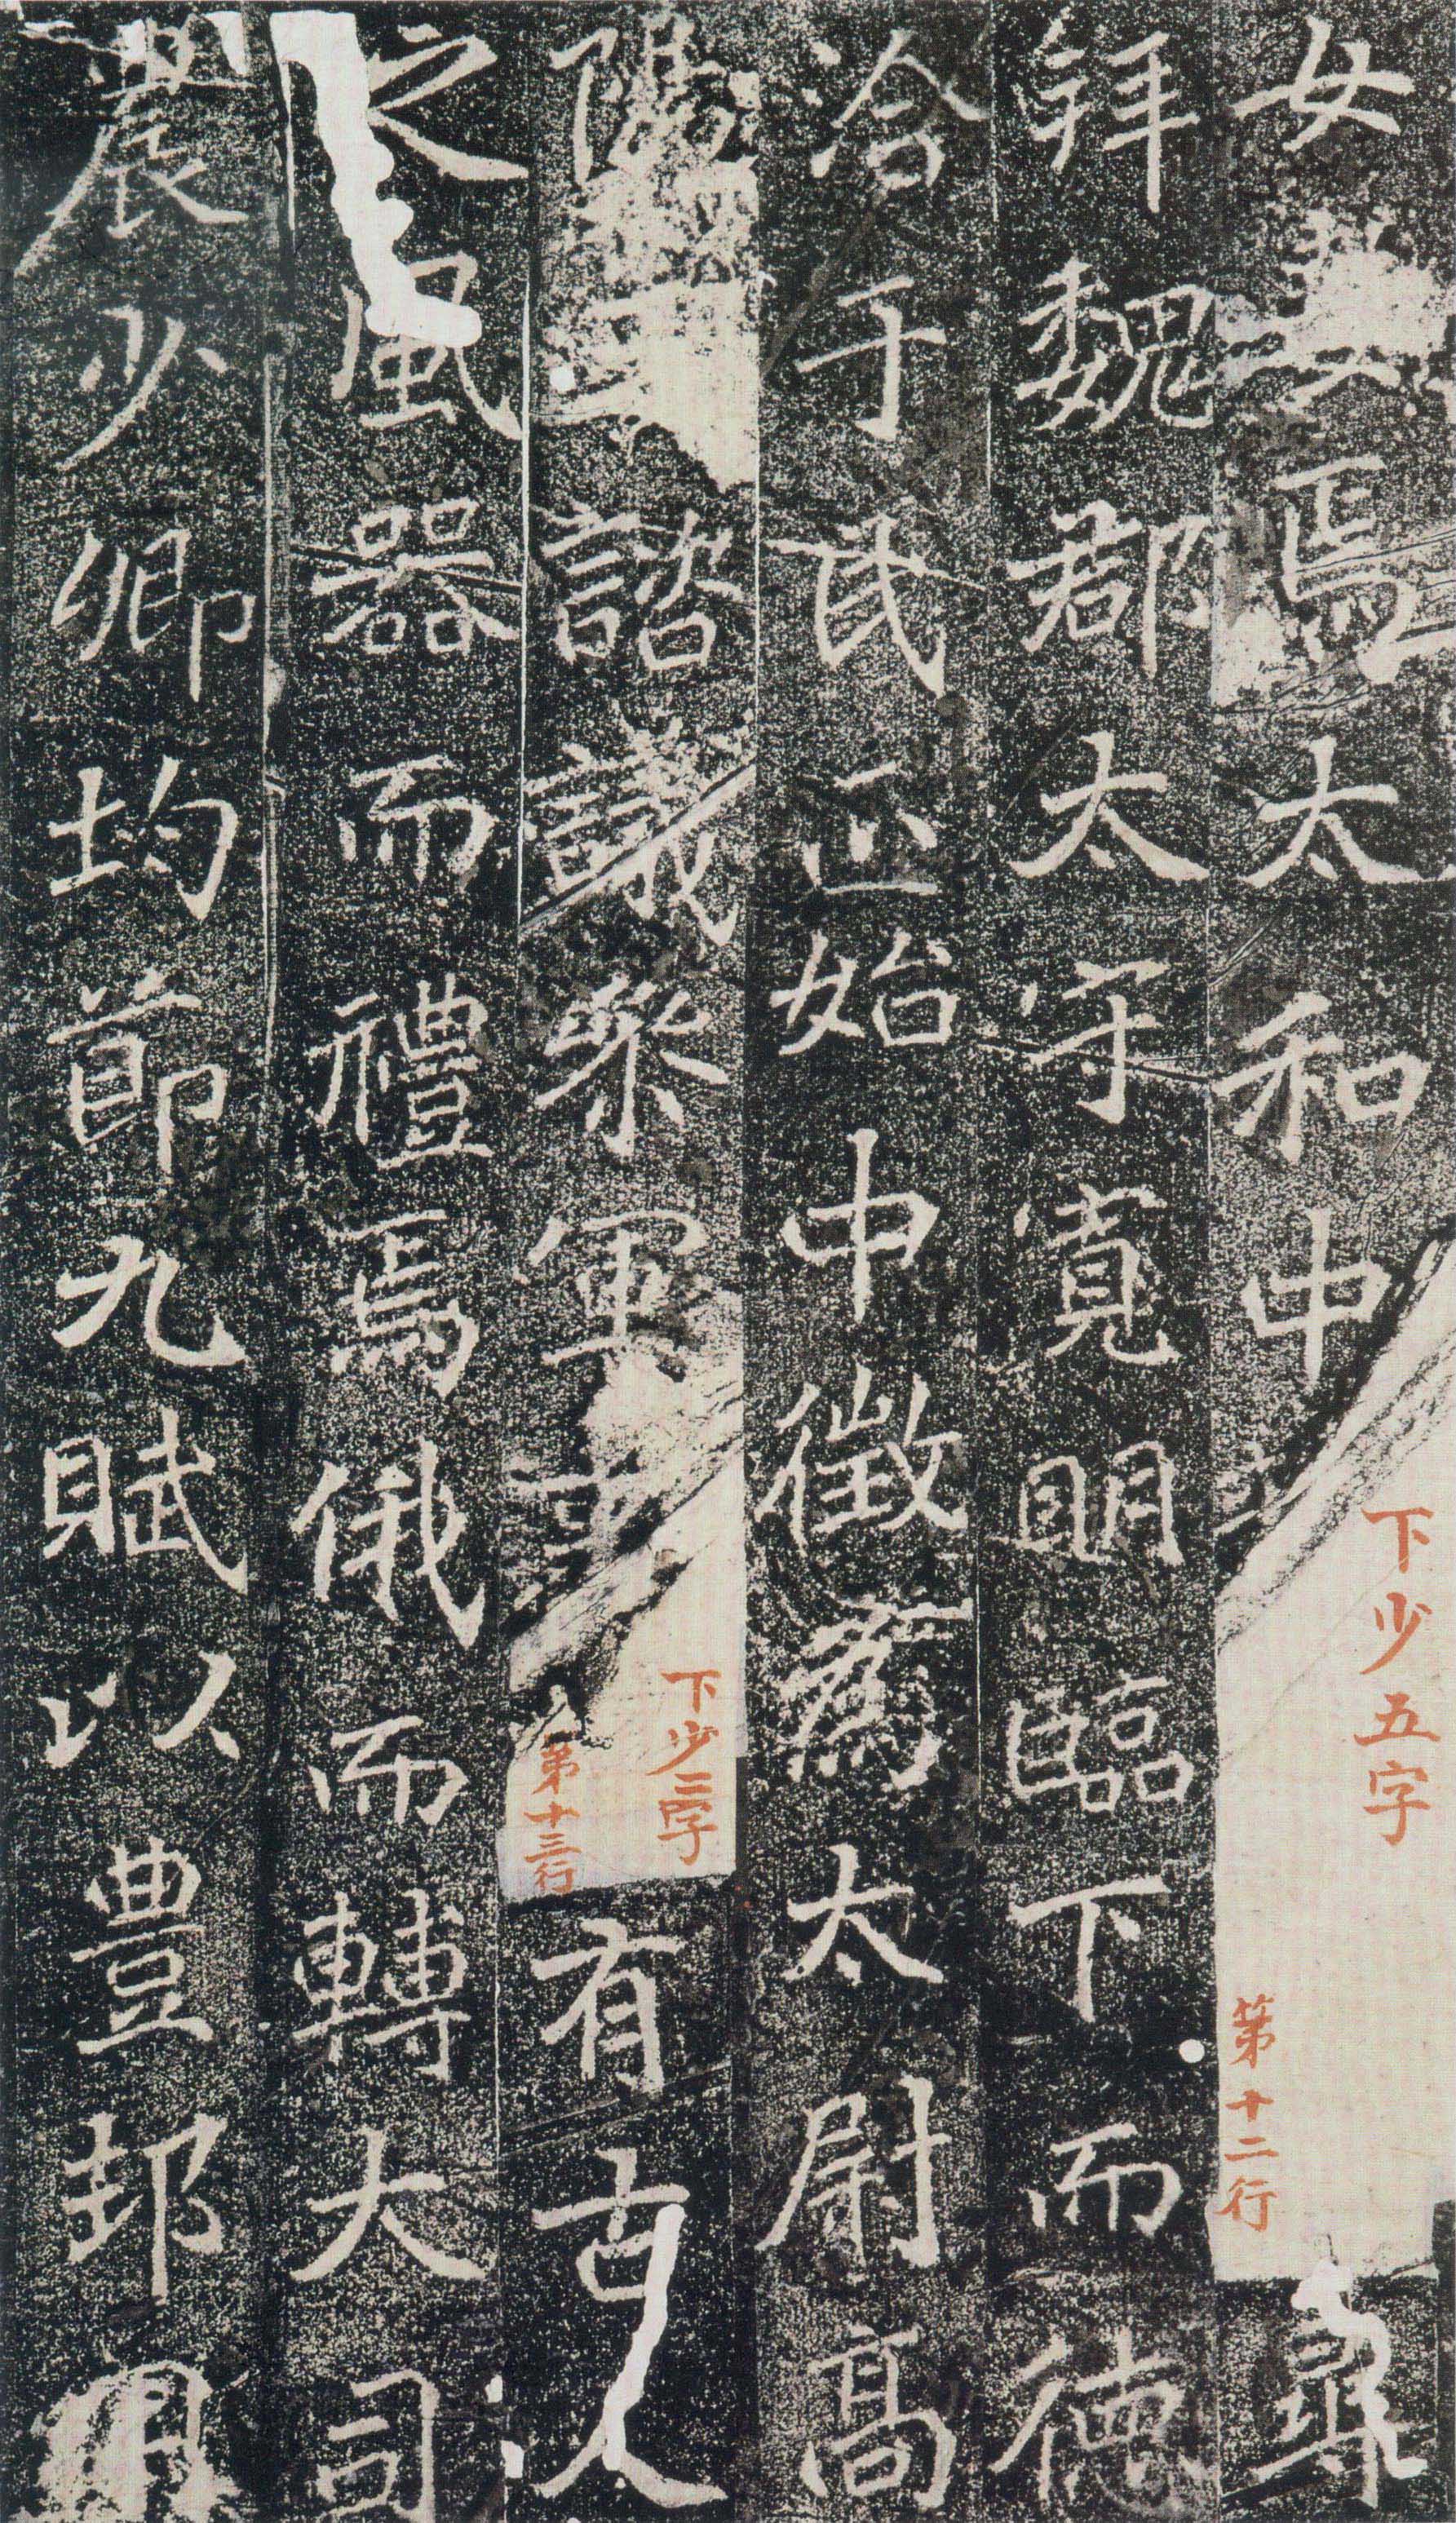 女焉太和中
下少五字
第十二行
尋
拜魏郡太守寬明臨下而德
洽于民正始中徵爲太尉高
陽王諮議叅軍事
下少二字
第十三行
有古人
之風器而禮焉俄而轉大司
農少卿均節九賦以豊邦用